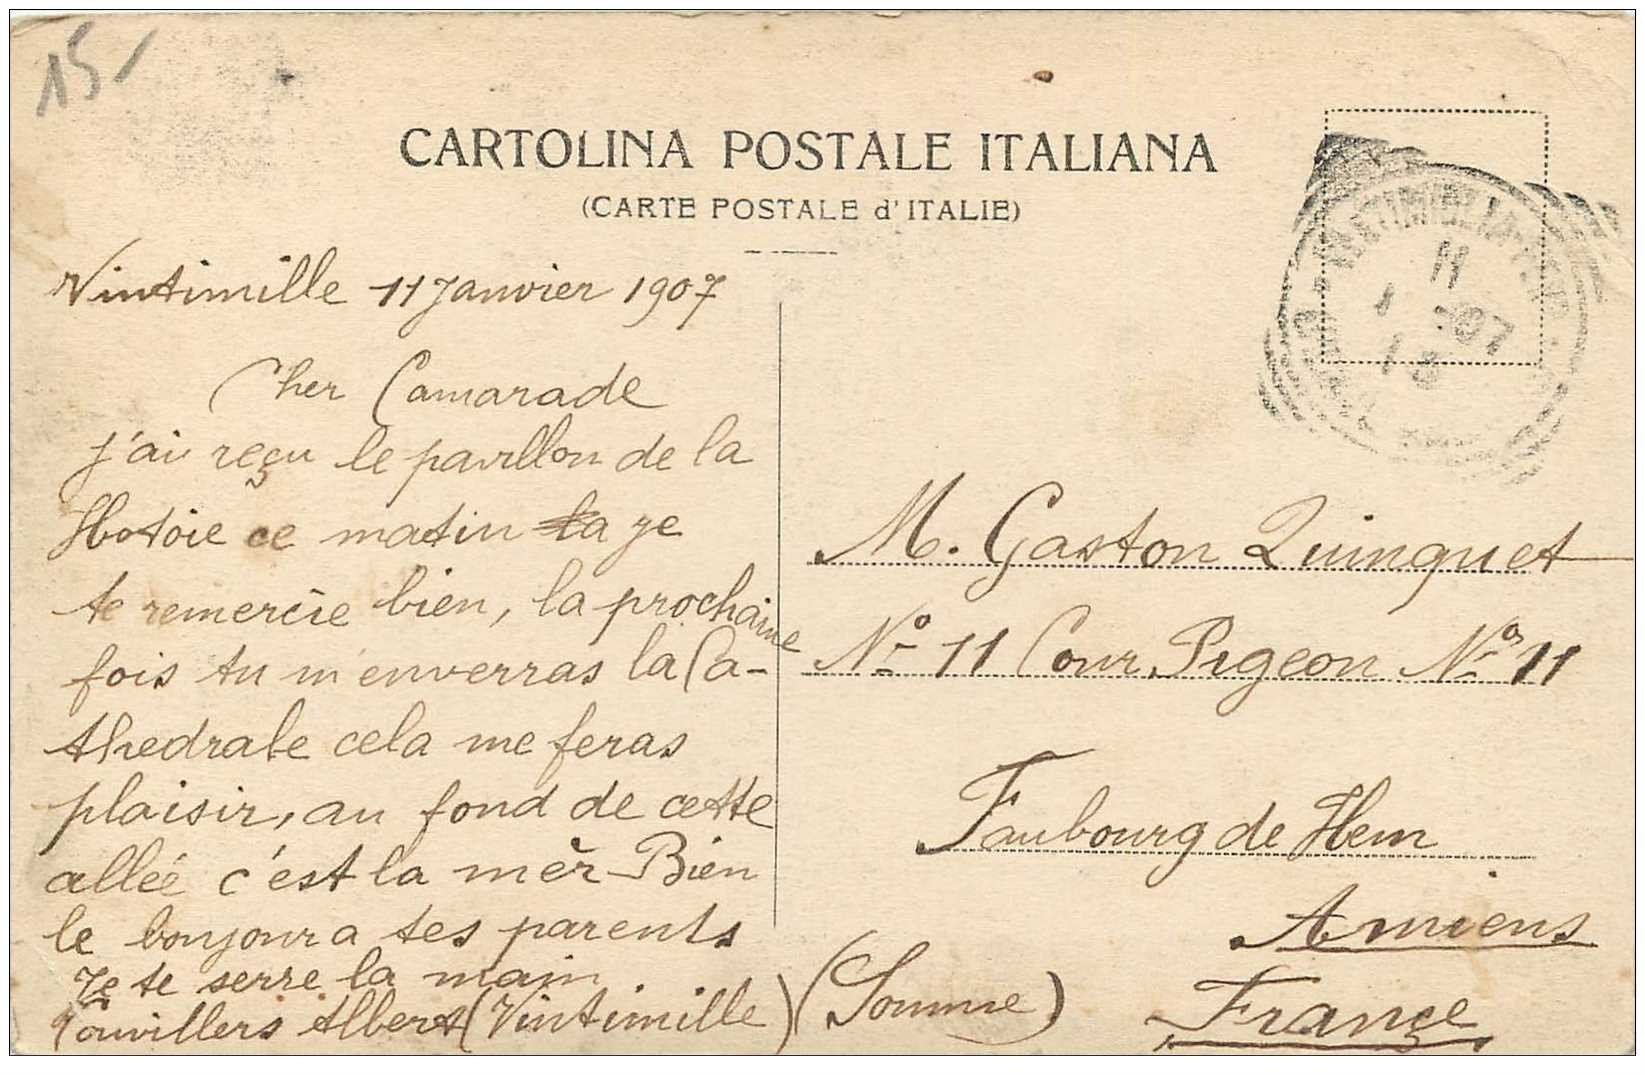 15-
CARTOLINA POSTALE ITALIANA
(CARTE POSTALE d'ITALIE)
Vintimille 11 Janvier 1907
Cher Camarade
j'ai reçu le pavillon de la
Hotoie ce matin la je
te remercie bien, la prochaine
fois tu m'enverras la Ca-
thedrale cela me feras
plaisir, au fond de cette
allée c'est la mèr Bien
le bonjour a tes parents
Je te serre la main
Albert (Vintimille)
11
1 -07
M. Gaston Quinquet
No 11 Cour Pigeon No 11
Faubourg de Hem
Amiens
(Somme)
France